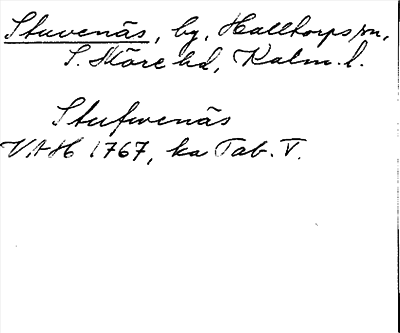 Stuvenäs, by, Halltorps sn,
S. Möre hd, Kalm. l.
Stufvenäs
VAH 1767, ka Tab. V.